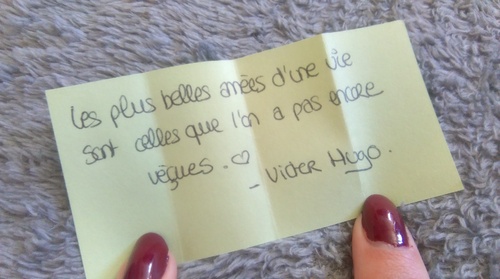 Les plus belles années d'une vie
sont celles que l'on a pas encore
véçues. ♡
- Victer Hugo.